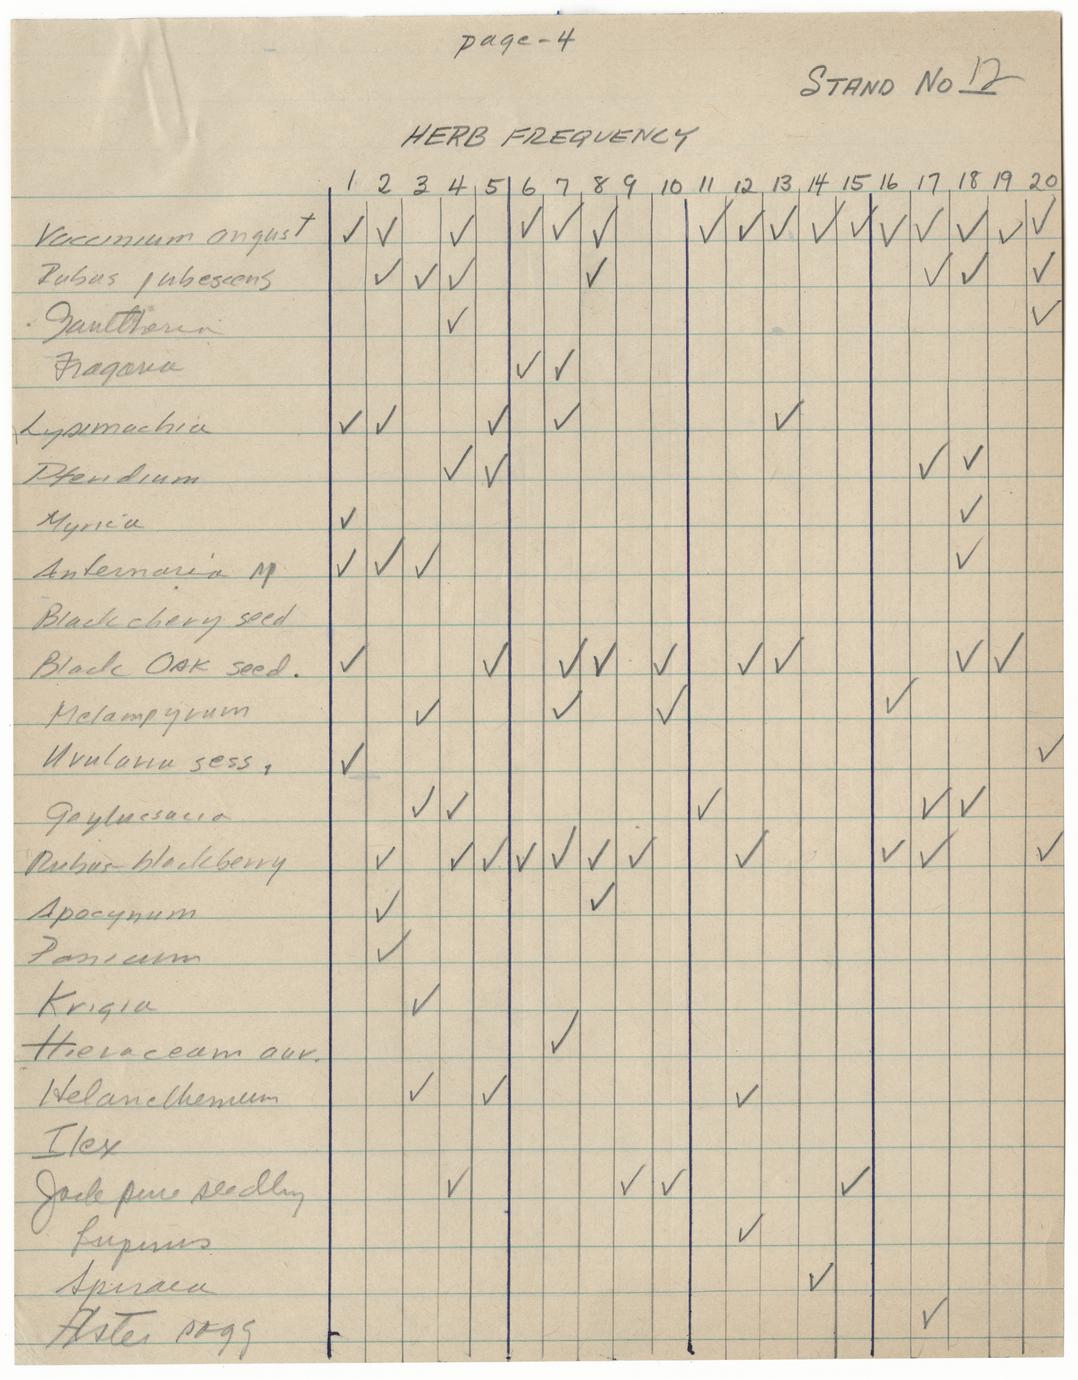 page-4
STAND No 12
HERB FREQUENCY
1 2 3 4 5 6 7 8 9 10 11 12 13 14 15 16 17 18 19 20
Vaccinium angust ✓ ✓ ✓ ✓ ✓ ✓ ✓ ✓ ✓ ✓ ✓ ✓ ✓ ✓ ✓ ✓
Rubus pubescens ✓ ✓ ✓ ✓ ✓ ✓ ✓
Gaultheria ✓ ✓
Fragaria ✓ ✓
Lysimachia ✓ ✓ ✓ ✓ ✓
Pteridium ✓ ✓ ✓ ✓
Myrica ✓ ✓
Antennaria ✓ ✓ ✓ ✓
Black chery seed
Black OAK seed. ✓ ✓ ✓ ✓ ✓ ✓ ✓ ✓ ✓
Melampyrum ✓ ✓ ✓ ✓
Uvularia sess. ✓ ✓
Gaylussacia ✓ ✓ ✓ ✓ ✓
Rubus-blackberry ✓ ✓ ✓ ✓ ✓ ✓ ✓ ✓ ✓ ✓ ✓
Apocynum ✓ ✓
Panicum ✓
Krigia ✓
Hieraceam aur. ✓
Helianthemum ✓ ✓ ✓
Ilex
Jack pine seedling ✓ ✓ ✓ ✓
Lupinus ✓
Spiraea ✓
Aster sagg ✓